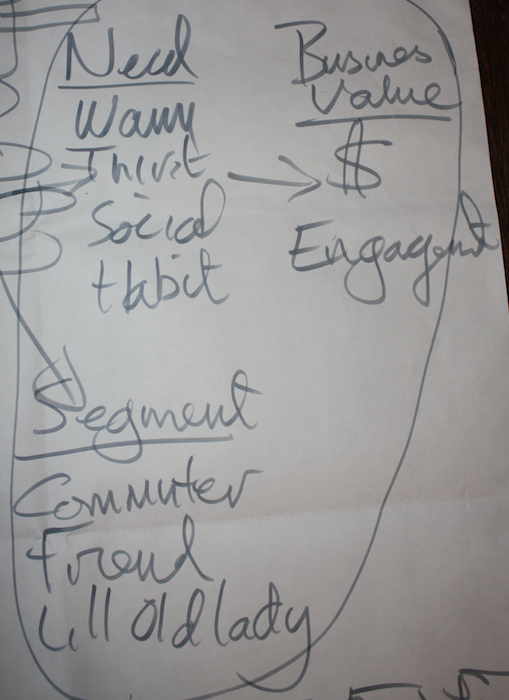 Need
Warm
Thirst
Social
Habit
Business
Value
$
Engagement
Segment
Commuter
Friend
Lill Old lady